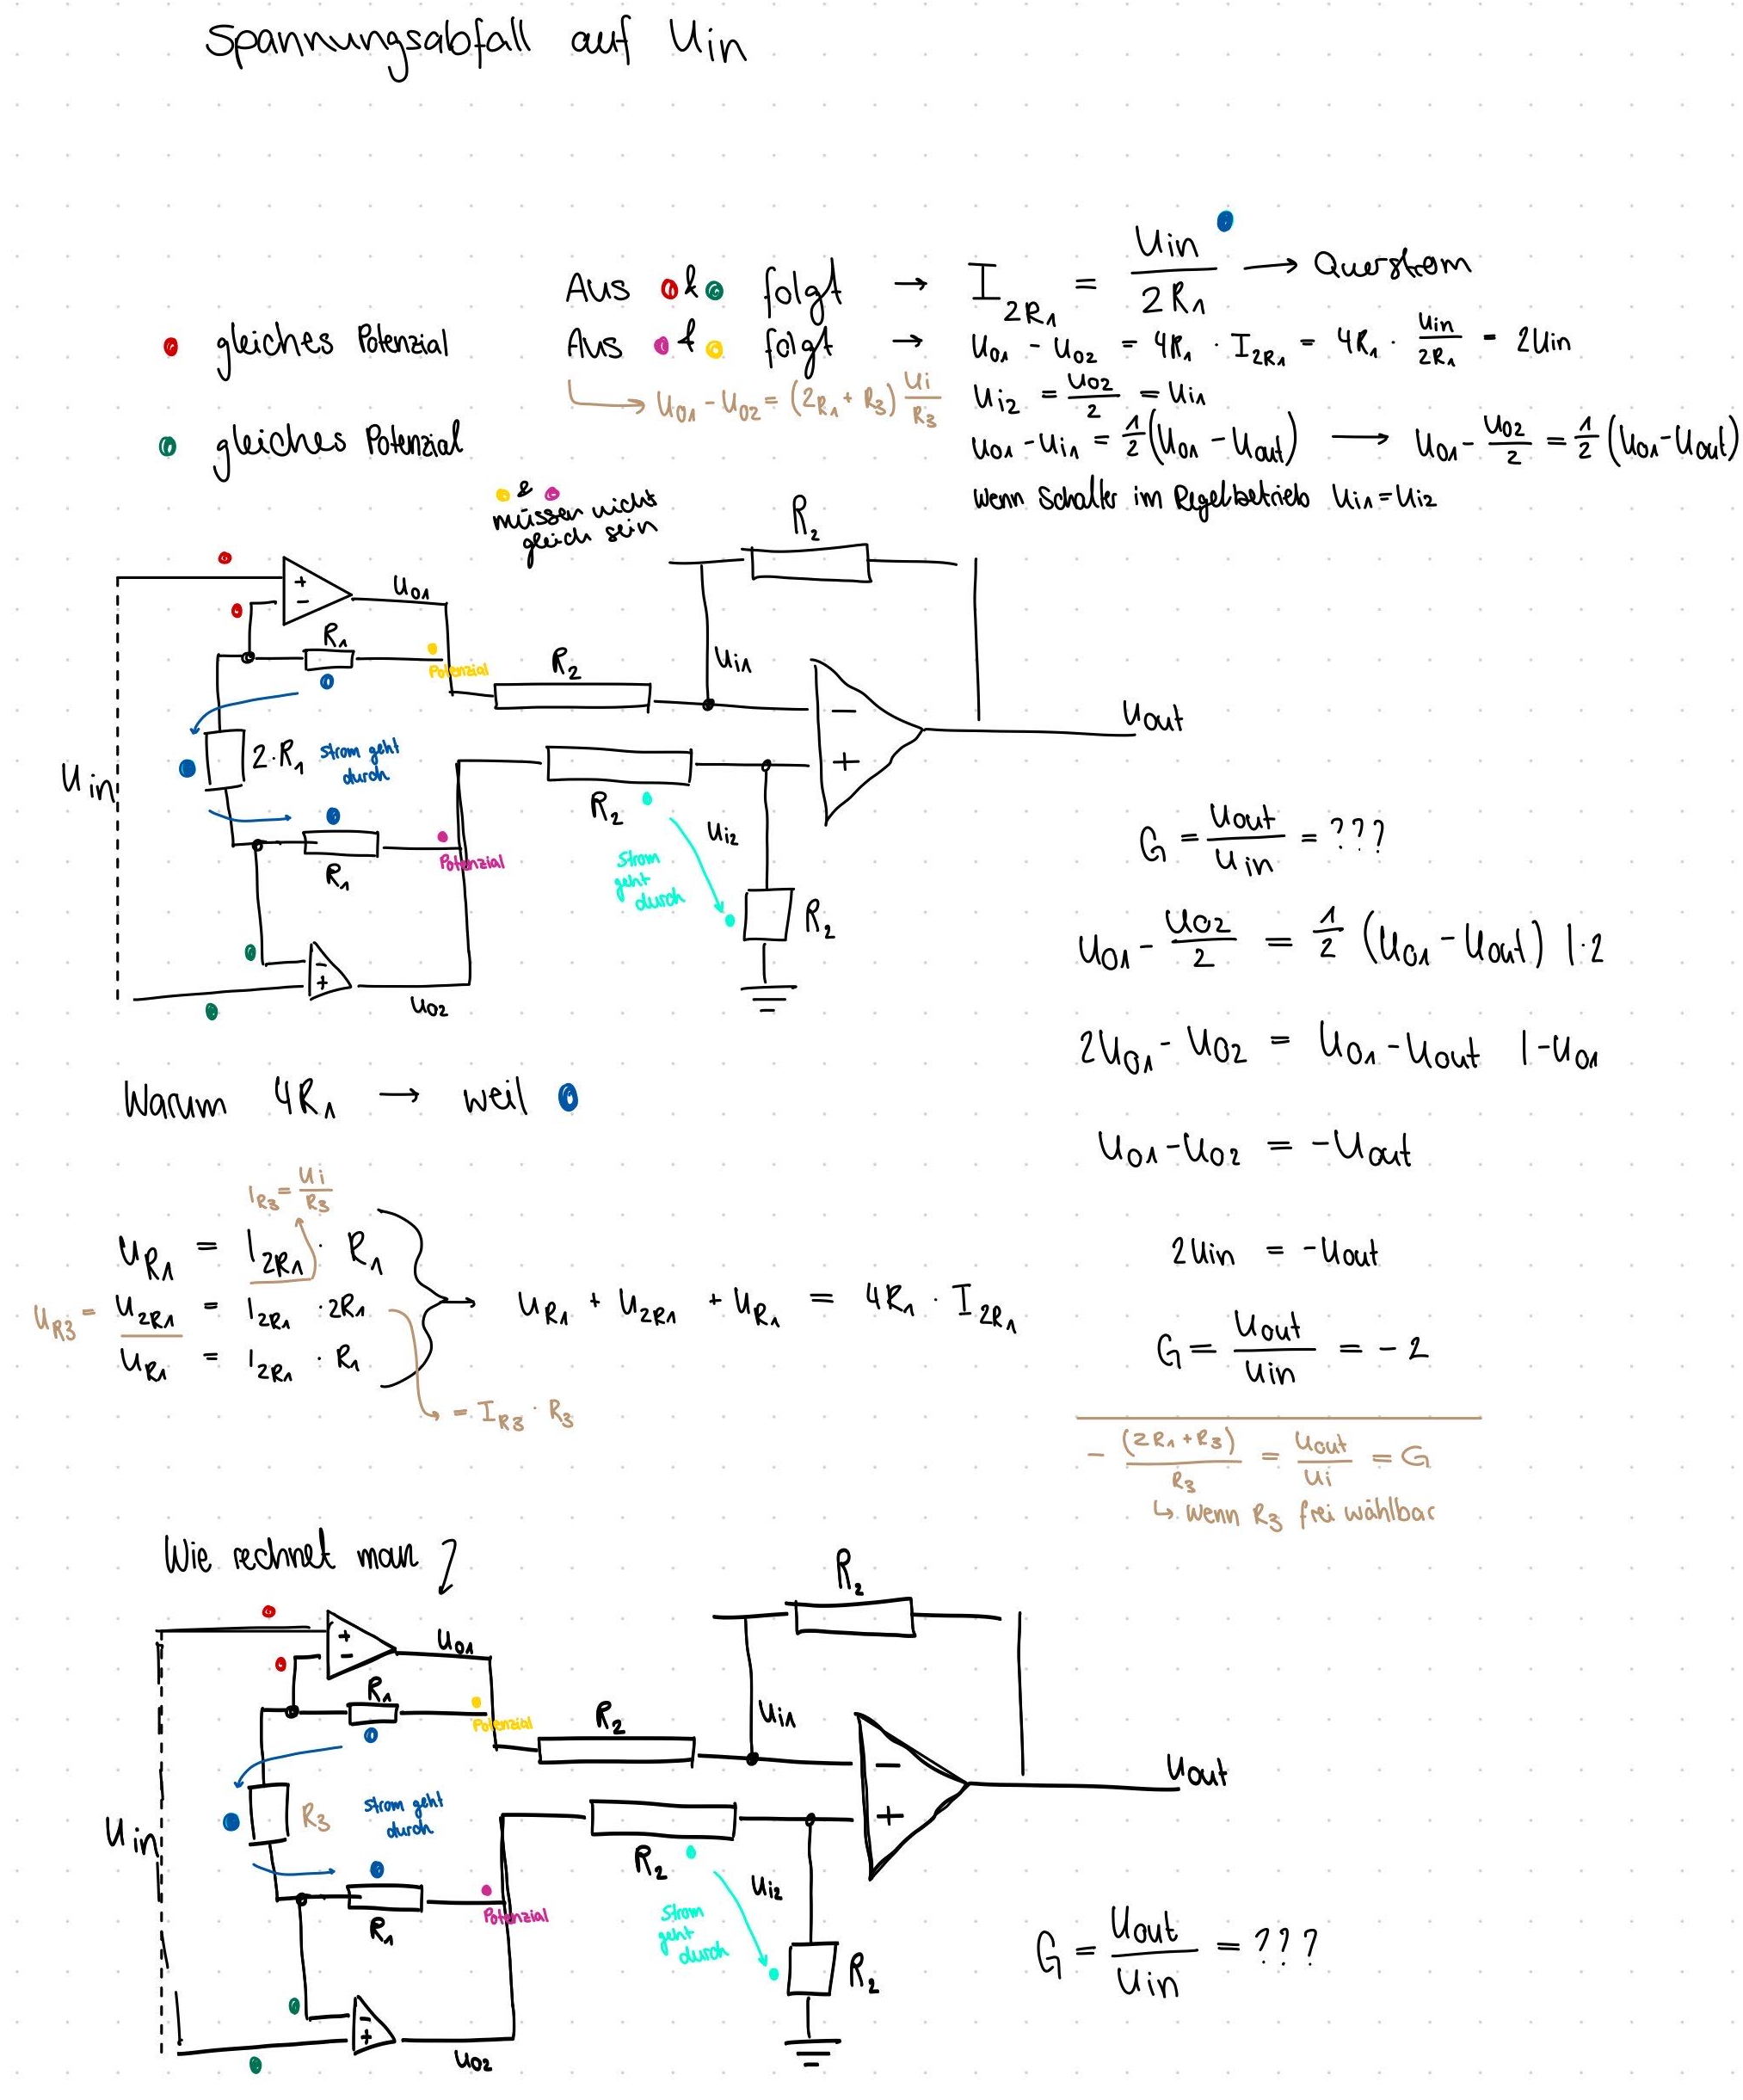 Spannungsabfall auf Uin
Aus & folgt → I2R1 = Uin / 2R1 → Querstrom
gleiches Potenzial
Aus & folgt → U01 - U02 = 4R1 · I2R1 = 4R1 · Uin / 2R1 = 2Uin
↳ U01 - U02 = (2R1 + R3) Ui / R3
Ui2 = U02 / 2 = Ui1
gleiches Potenzial
U01 - Ui1 = 1/2 (U01 - Uout) → U01 - U02 / 2 = 1/2 (U01 - Uout)
Wenn Schalter im Regelbetrieb Ui1 = Ui2
&
müssen nicht
gleich sein
R2
+
-
U01
R1
Potenzial
R2
Ui1
-
+
Uout
Uin
2·R1
Strom geht
durch
R2
Ui2
R1
Potenzial
Strom
geht
durch
R2
-
+
U02
G = Uout / Uin = ???
U01 - U02 / 2 = 1/2 (U01 - Uout) |·2
2U01 - U02 = U01 - Uout |-U01
U01 - U02 = -Uout
2Uin = -Uout
G = Uout / Uin = -2
- (2R1 + R3) / R3 = Uout / Ui = G
↳ wenn R3 frei wählbar
Warum 4R1 → weil
IR3 = Ui / R3
UR1 = I2R1 · R1
UR3 = U2R1 = I2R1 · 2R1
UR1 = I2R1 · R1
→ UR1 + U2R1 + UR1 = 4R1 · I2R1
= IR3 · R3
Wie rechnet man
R2
+
-
U01
R1
Potenzial
R2
Ui1
-
+
Uout
Uin
R3
Strom geht
durch
R2
Ui2
R1
Potenzial
Strom
geht
durch
R2
-
+
U02
G = Uout / Uin = ???